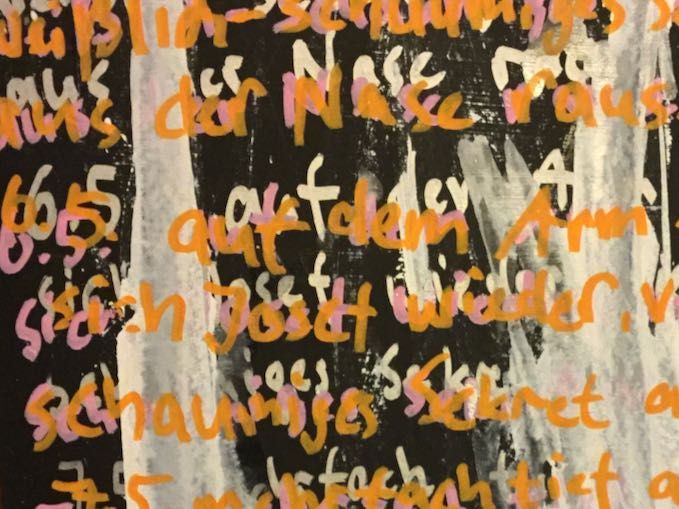 weißlich-schaumiges s
aus der Nase raus
6.5. auf dem Arm
sich Josef wieder, v
schaumiges Sekret a
7.5 mehrfach tief a